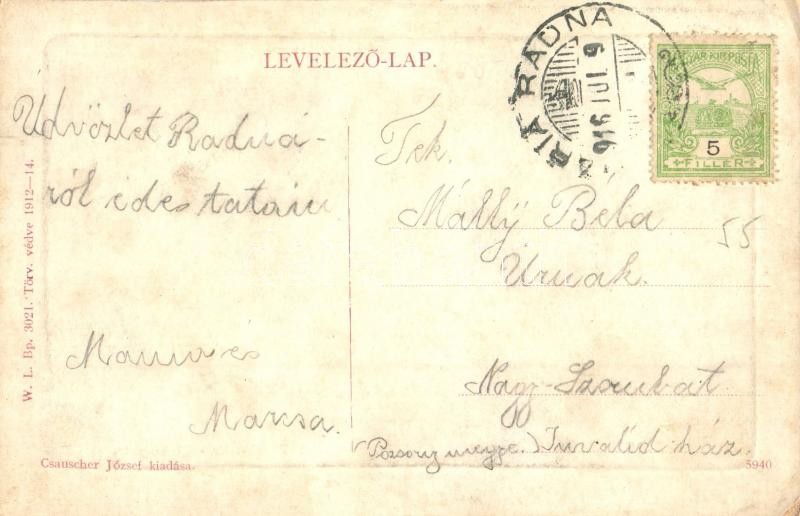 LEVELEZŐ-LAP.
MÁRIA RADNA
916 JUL 9
MAGYAR KIR. POSTA
5
FILLÉR
Üdvözlet Radná-
ról édes tatám
Mama és
Marcsa.
Tek.
Mátly Béla
Úrnak.
55
Nagy-Szombat
(Pozsony megye.) Invalid ház.
W. L. Bp. 3021. Törv. védve 1912—14.
Csauscher József kiadása.
5940